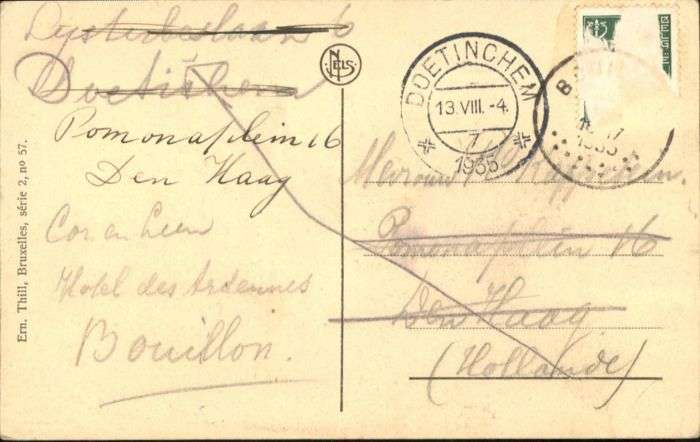 6
Doetichem
Pomonaplein 16
Den Haag
Cor en Leen
Hotel des Ardennes
Bouillon.
Ern. Thill, Bruxelles, série 2, no 57.
NELS
DOETINCHEM
13.VIII.-4.
7
1935
B
17
1935
BELGIË
Mevrouw
Pomonaplein 16
Den Haag
(Hollande)